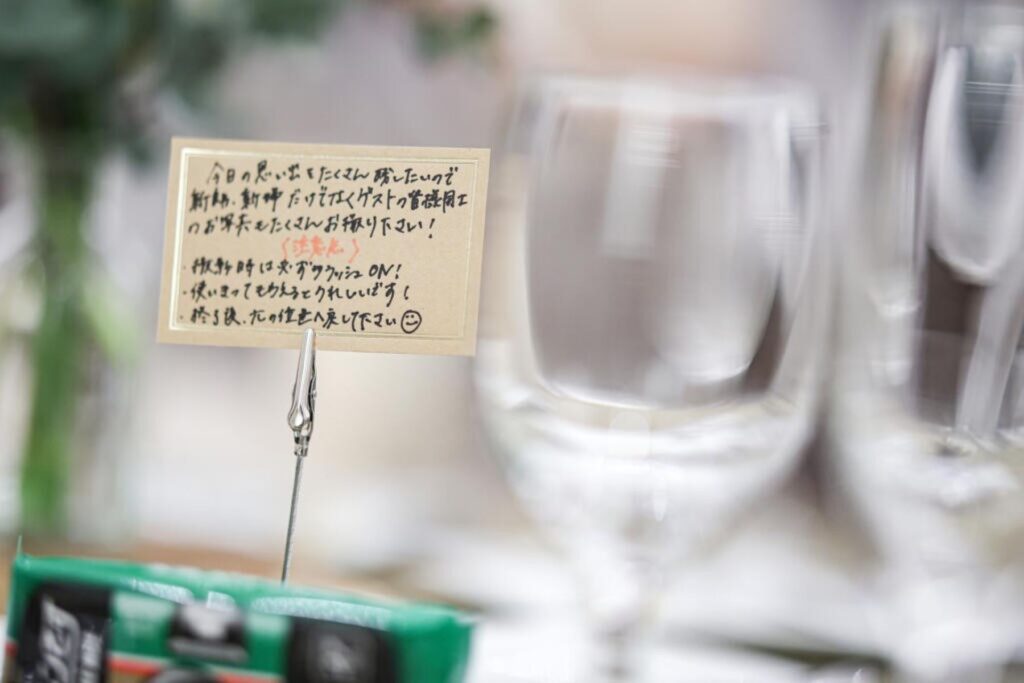 今日の思い出をたくさん残したいので
新郎、新婦だけでなくゲストの皆様同士
のお写真もたくさんお撮り下さい!
〈注意点〉
・撮影時は必ずフラッシュON!
・使いきってもらえるとうれしいです!
・終了後、元の位置へ戻して下さい